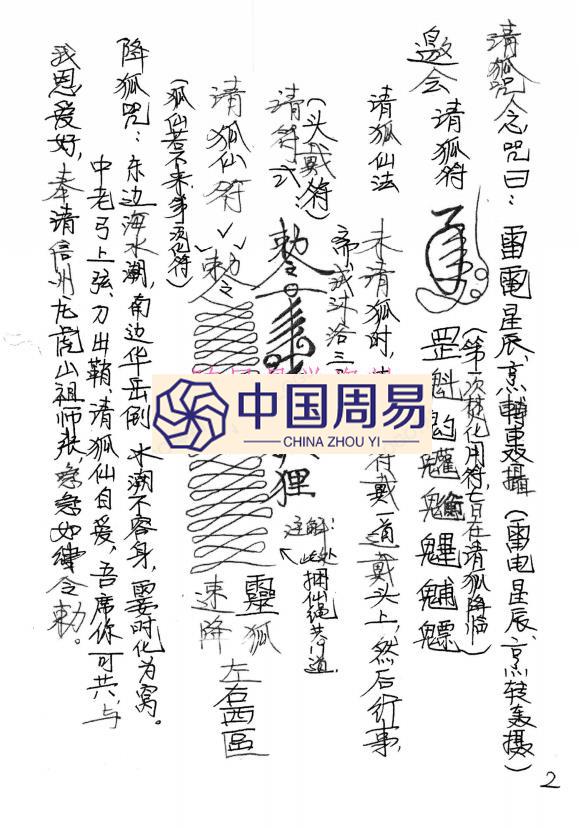 请狐咒念咒曰：雷電星辰、烹轉轰攝（雷电星辰、烹转轰摄）
（第一次焚化用符七日在请狐降临）
邀会 请狐符
罡魁
请狐仙法 未请狐时，
符戴一道戴头上，然后行事，
斋戒沐浴三
（头戴符）
请符式
敕令
狸
注解：此处捆仙绳共 道
请狐仙符 敕令 靈狐 速降 左右西區
（狐仙若不来多次化符）
降狐咒：东边海水潮，南边华岳倒，水潮不容身，霎时化为窝。
中老弓上弦、刀出鞘、请狐仙自爱，吾席你可共、与
我恩爱好，奉请信州龙虎山祖师张 急急如律令敕。
中国周易
CHINA ZHOU YI
2